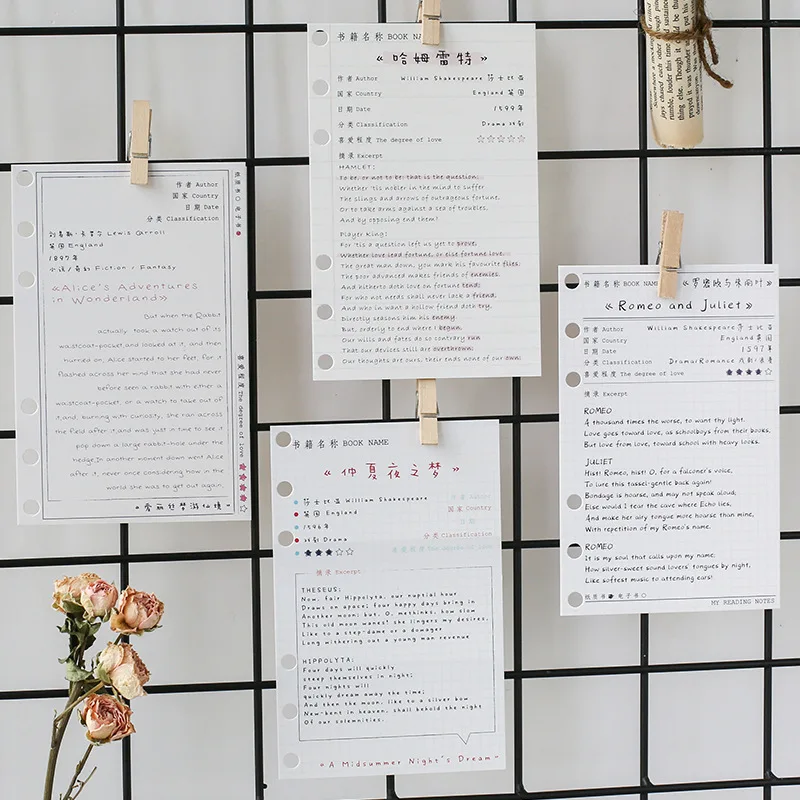 作者 Author
国家 Country
日期 Date
分类 Classification
纸质书○ 电子书●
刘易斯·卡罗尔 Lewis Carroll
英国 England
1897年
小说/奇幻 Fiction / Fantasy
《Alice's Adventures
in Wonderland》
But when the Rabbit
actually took a watch out of its
waistcoat-pocket and looked at it, and then
hurried on, Alice started to her feet, for it
flashed across her mind that she had never
before seen a rabbit with either a
waistcoat-pocket, or a watch to take out of
it, and, burning with curiosity, she ran across
the field after it, and was just in time to see it
pop down a large rabbit-hole under the
hedge. In another moment down went Alice
after it, never once considering how in the
world she was to get out again.
喜爱程度 The degree of love ★★★★☆
爱丽丝梦游仙境
书籍名称 BOOK NA
《哈姆雷特》
作者 Author William Shakespeare 莎士比亚
国家 Country England 英国
日期 Date 1599年
分类 Classification Drama 戏剧
喜爱程度 The degree of love ☆☆☆☆☆
摘录 Excerpt
HAMLET:
To be, or not to be: that is the question:
Whether 'tis nobler in the mind to suffer
The slings and arrows of outrageous fortune,
Or to take arms against a sea of troubles,
And by opposing end them!
Player King:
For 'tis a question left us yet to prove,
Whether love lead fortune, or else fortune love.
The great man down, you mark his favourite flies;
The poor advanced makes friends of enemies.
And hitherto doth love on fortune tend;
For who not needs shall never lack a friend,
And who in want a hollow friend doth try,
Directly seasons him his enemy.
But, orderly to end where I begun,
Our wills and fates do so contrary run
That our devices still are overthrown;
Our thoughts are ours, their ends none of our own:
书籍名称 BOOK NAME
《仲夏夜之梦》
莎士比亚 William Shakespeare 作者 Author
英国 England 国家 Country
1596年
戏剧 Drama 分类 Classification
★★★☆☆ 喜爱程度 The degree of love
摘录 Excerpt
THESEUS:
Now, fair Hippolyta, our nuptial hour
Draws on apace; four happy days bring in
Another moon: but O, methinks, how slow
This old moon wanes! she lingers my desires,
Like to a step-dame or a dowager
Long withering out a young man revenue
HIPPOLYTA:
Four days will quickly
steep themselves in night;
Four nights will
quickly dream away the time;
And then the moon, like to a silver bow
New-bent in heaven, shall behold the night
Of our solemnities.
A Midsummer Night's Dream
书籍名称 BOOK NAME 《罗密欧与朱丽叶》
《Romeo and Juliet》
作者 Author William Shakespeare 莎士比亚
国家 Country England 英国
日期 Date 1597年
分类 Classification Drama/Romance 戏剧/浪漫
喜爱程度 The degree of love ★★★★☆
摘录 Excerpt
ROMEO
A thousand times the worse, to want thy light.
Love goes toward love, as schoolboys from their books,
But love from love, toward school with heavy looks.
JULIET
Hist! Romeo, hist! O, for a falconer's voice,
To lure this tassel-gentle back again!
Bondage is hoarse, and may not speak aloud;
Else would I tear the cave where Echo lies,
And make her airy tongue more hoarse than mine,
With repetition of my Romeo's name.
ROMEO
It is my soul that calls upon my name:
How silver-sweet sound lovers' tongues by night,
Like softest music to attending ears!
纸质书● 电子书○
MY READING NOTES